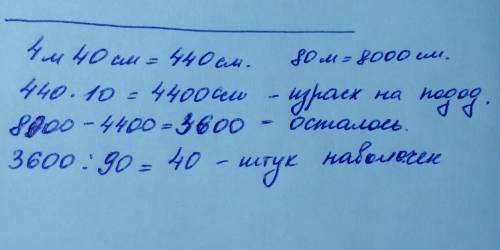 4 м 40 см = 440 см. 80 м = 8000 см.
440 · 10 = 4400 см - израсх на подод.
8000 - 4400 = 3600 - осталось.
3600 : 90 = 40 - штук наволочек